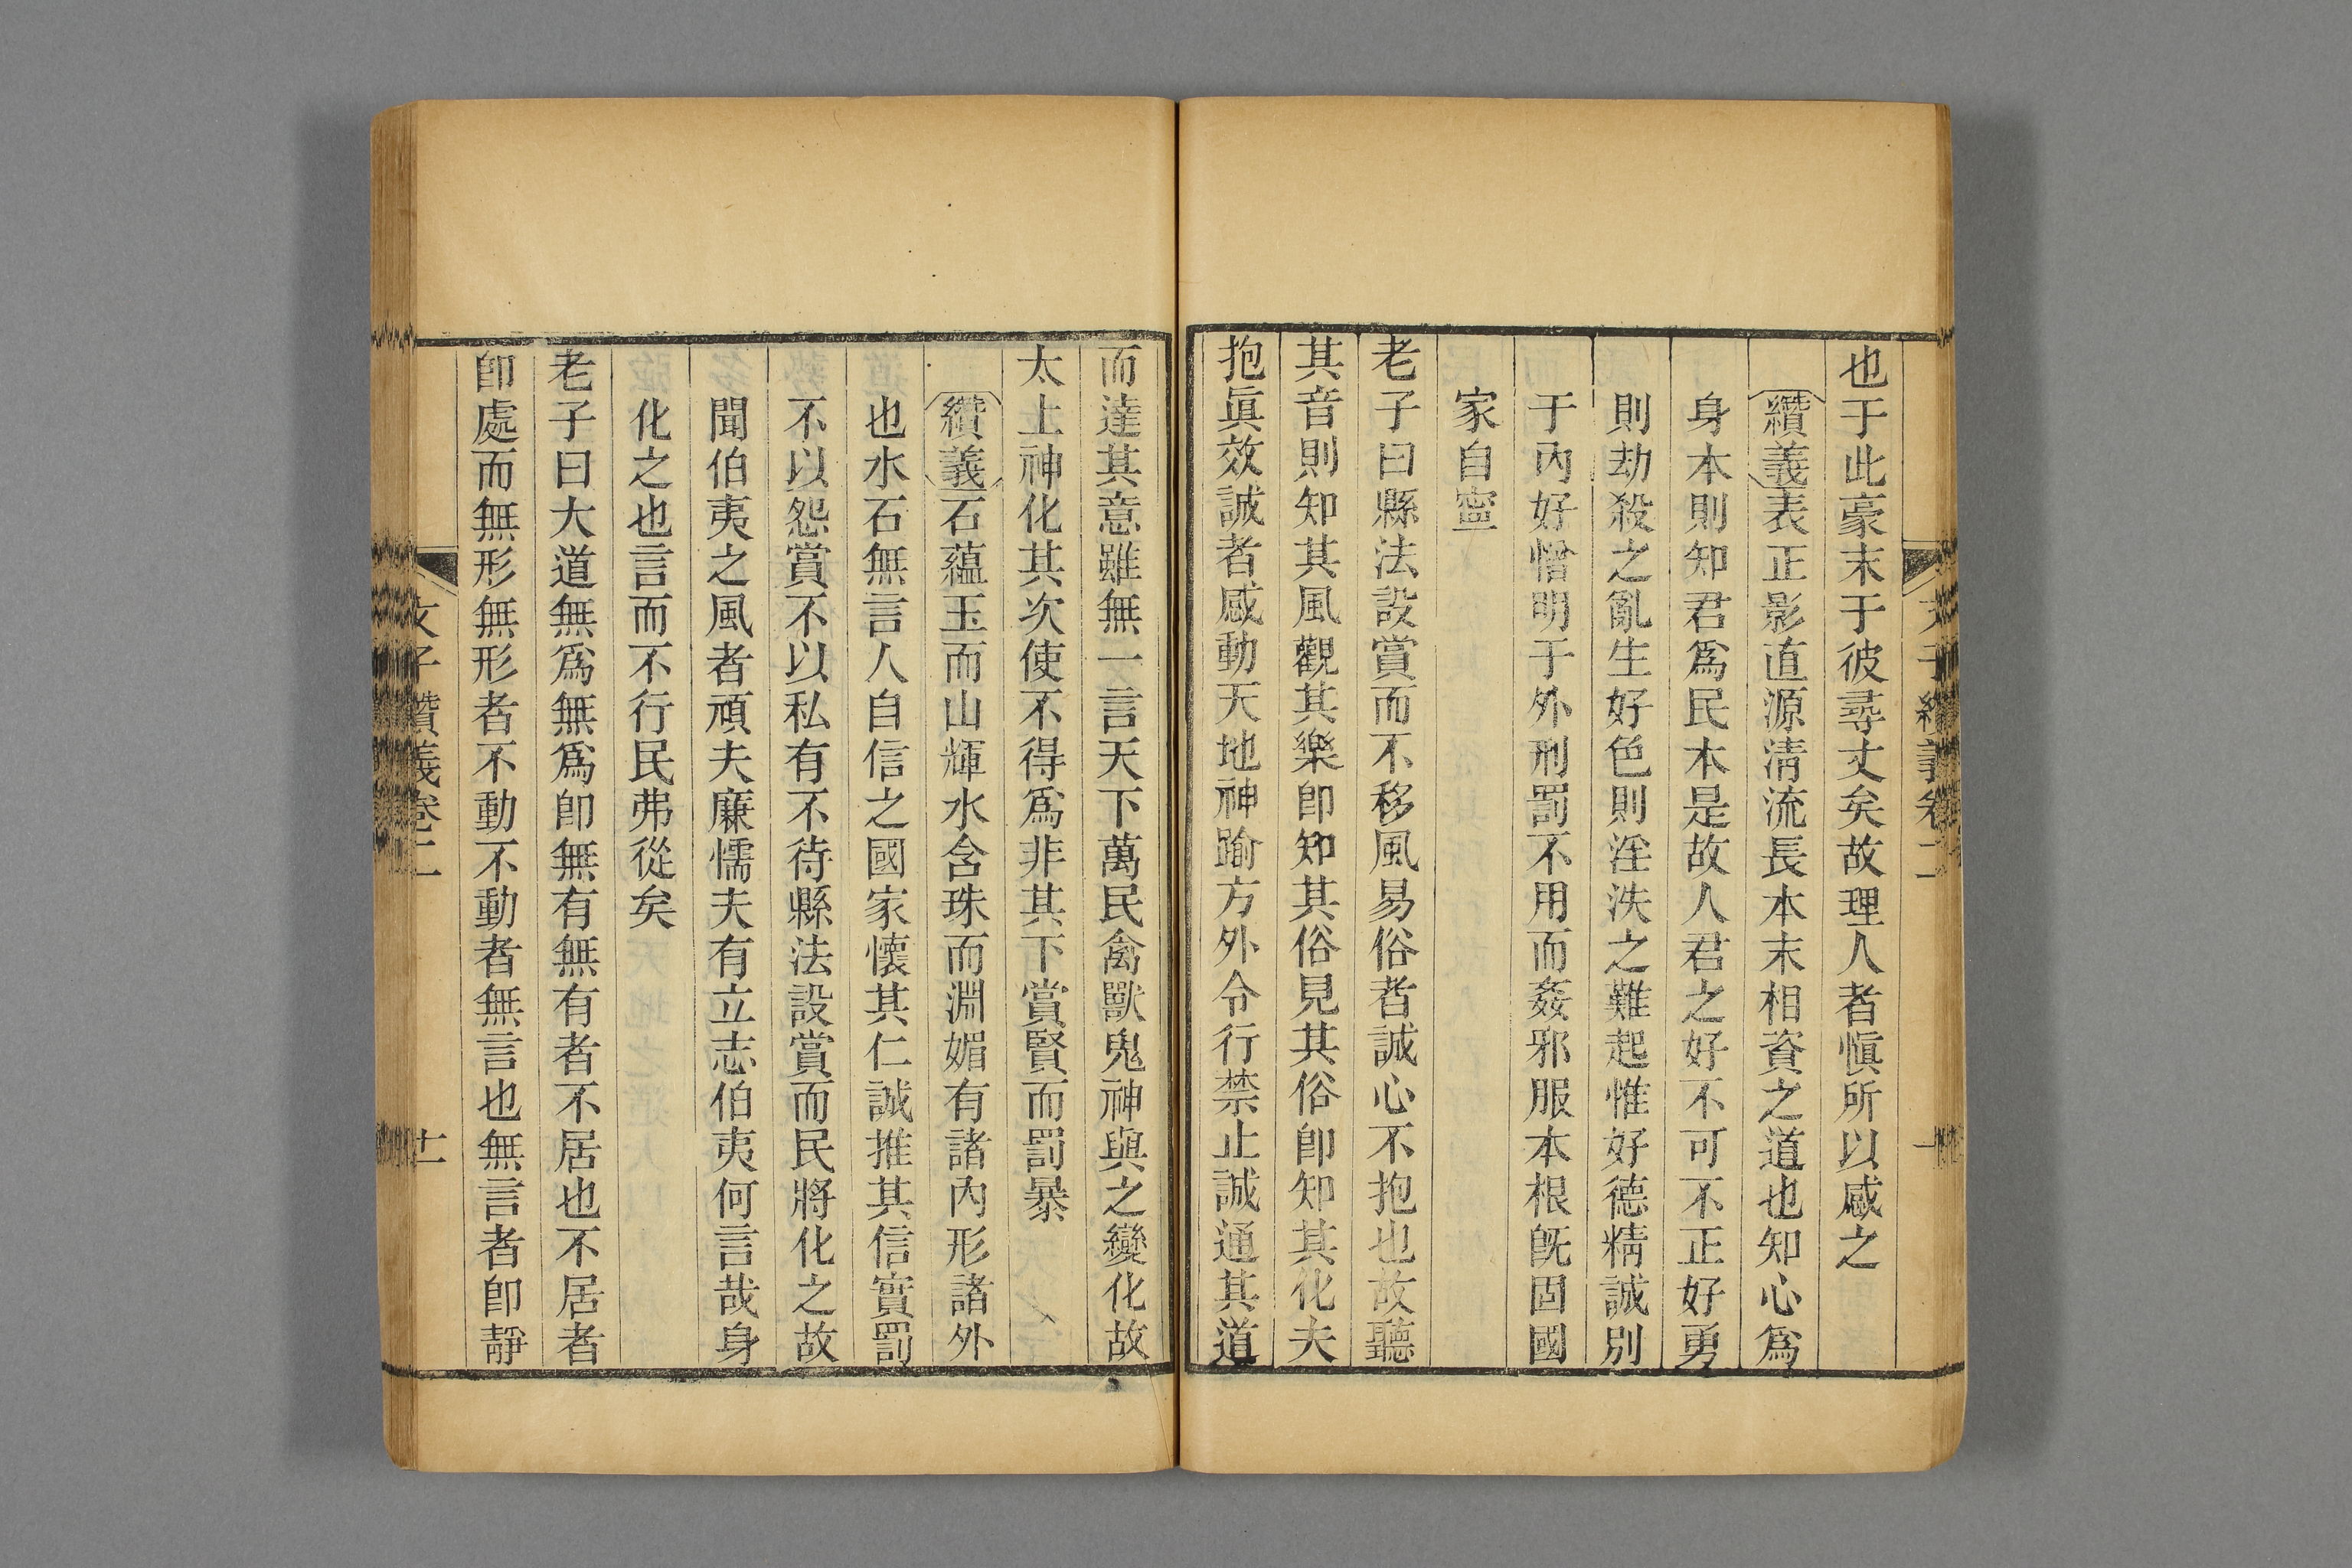 也于此豪末于彼尋丈矣故理人者愼所以感之
纘義表正影直源淸流長本末相資之道也知心爲
身本則知君爲民本是故人君之好不可不正好勇
則劫殺之亂生好色則淫泆之難起惟好德精誠別
于內好憎明于外刑罰不用而姦邪服本根旣固國
家自寍
老子曰縣法設賞而不移風易俗者誠心不抱也故聽
其音則知其風觀其樂卽知其俗見其俗卽知其化夫
抱眞效誠者感動天地神踰方外令行禁止誠通其道
而達其意雖無一言天下萬民禽獸鬼神與之變化故
太上神化其次使不得爲非其下賞賢而罰暴
纘義石蘊玉而山輝水含珠而淵媚有諸內形諸外
也水石無言人自信之國家懷其仁誠推其信實罰
不以怨賞不以私有不待縣法設賞而民將化之故
聞伯夷之風者頑夫廉懦夫有立志伯夷何言哉身
化之也言而不行民弗從矣
老子曰大道無爲無爲卽無有無有者不居也不居者
卽處而無形無形者不動不動者無言也無言者卽靜
文子纘義卷二
十一